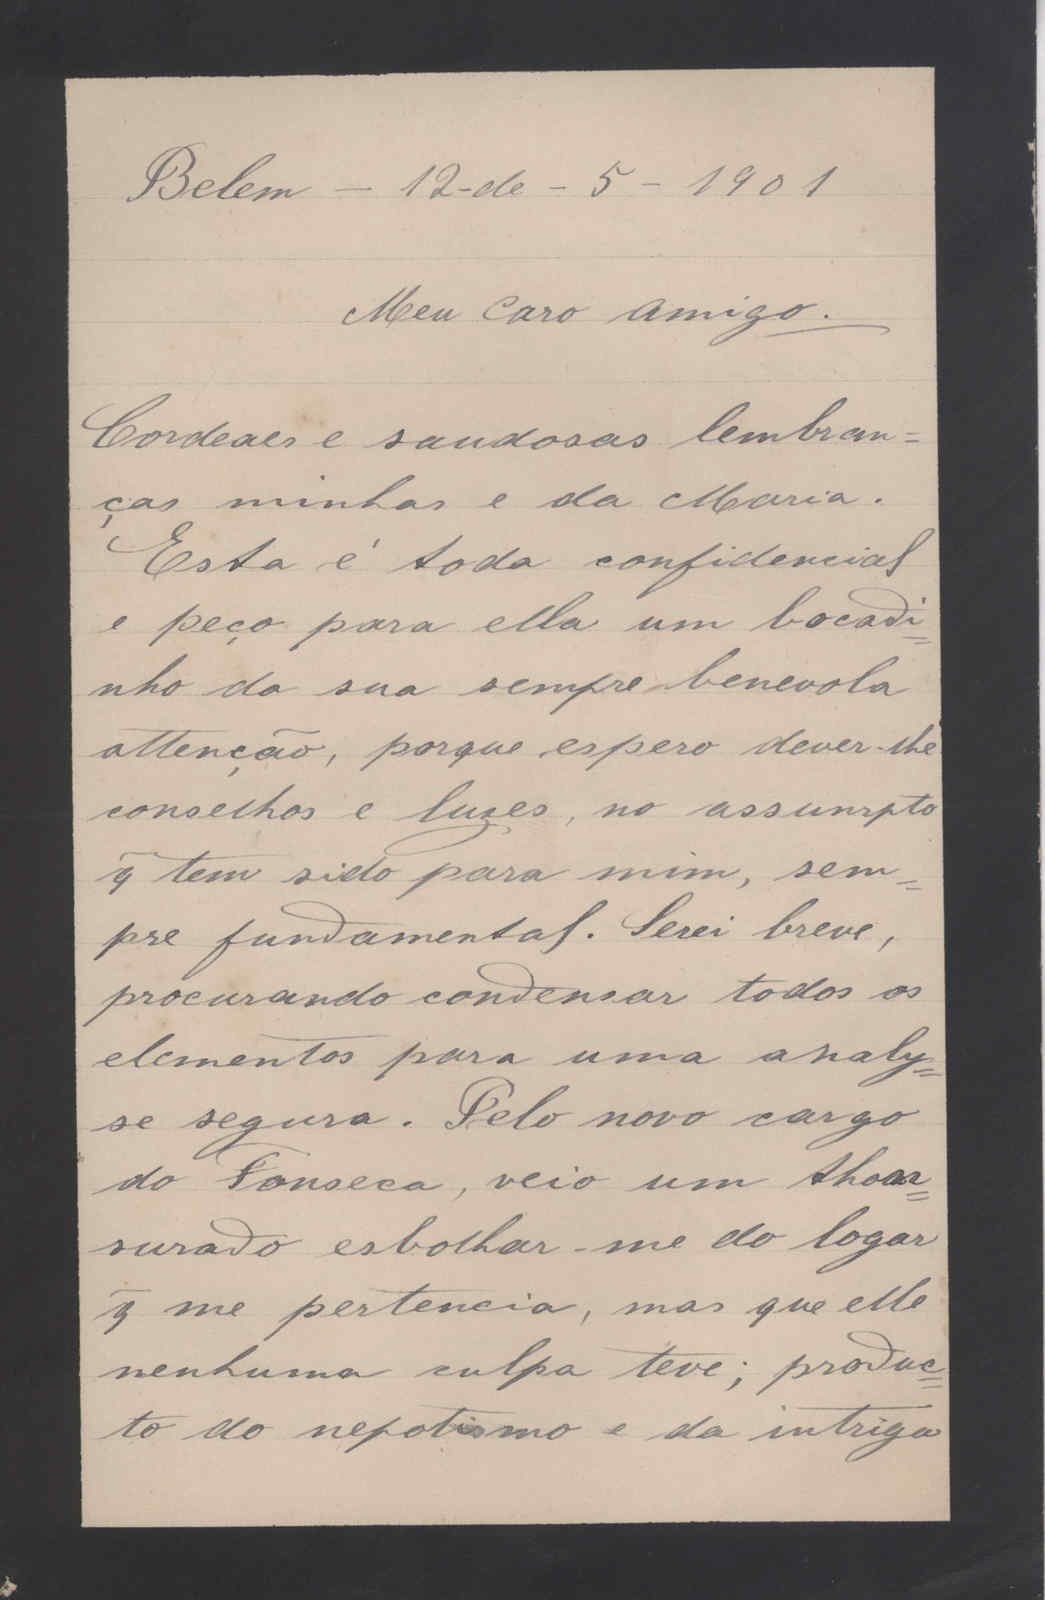 Belem - 12-de-5-1901
Meu Caro Amigo.
Cordeaes e saudosas lembran=
ças minhas e da Maria.
Esta é toda confidencial
e peço para ella um bocadi=
nho da sua sempre benevola
attenção, porque espero dever-lhe
conselhos e luzes, no assumpto
q̃ tem sido para mim, sem=
pre fundamental. Serei breve,
procurando condensar todos os
elementos para uma analy=
se segura. Pelo novo cargo
do Fonseca, veio um
surado esbolhar-me do logar
q̃ me pertencia, mas que elle
nenhuma culpa teve; produc=
to do nepotismo e da intriga